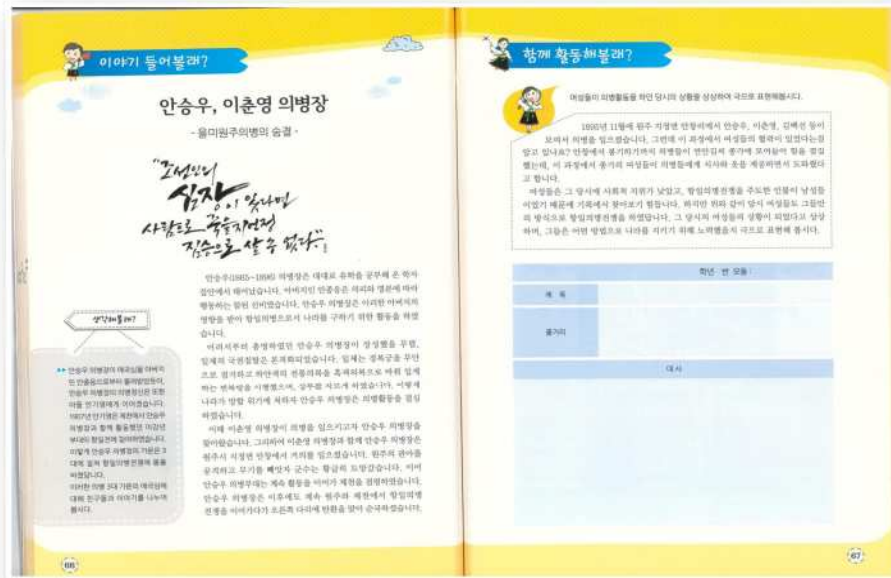 이야기 들어볼래?
안승우, 이춘영 의병장
- 을미원주의병의 숨결 -
"조선인의
심장이 있다면
사람으로 죽을지언정
짐승으로 살 수 없다."
안승우(1865~1896) 의병장은 대대로 유학을 공부해 온 학자
집안에서 태어났습니다. 아버지인 안종응은 의리와 명분에 따라
행동하는 참된 선비였습니다. 안승우 의병장은 이러한 아버지의
영향을 받아 항일의병으로서 나라를 구하기 위한 활동을 하였
습니다.
어려서부터 총명하였던 안승우 의병장이 장성했을 무렵,
일제의 국권침탈은 본격화되었습니다. 일제는 경복궁을 무단
으로 점거하고 하얀색의 전통의복을 흑색의복으로 바꿔 입게
하는 변복령을 시행했으며, 상투를 자르게 하였습니다. 이렇게
나라가 망할 위기에 처하자 안승우 의병장은 의병활동을 결심
하였습니다.
이때 이춘영 의병장이 의병을 일으키고자 안승우 의병장을
찾아왔습니다. 그리하여 이춘영 의병장과 함께 안승우 의병장은
원주시 지정면 안창에서 거의를 일으켰습니다. 원주의 관아를
공격하고 무기를 빼앗자 군수는 황급히 도망갔습니다. 이어
안승우 의병부대는 계속 활동을 이어가 제천을 점령하였습니다.
안승우 의병장은 이후에도 계속 원주와 제천에서 항일의병
전쟁을 이어가다가 오른쪽 다리에 탄환을 맞아 순국하셨습니다.
생각해볼래?
안승우 의병장이 애국심을 아버지
인 안종응으로부터 물려받았듯이,
안승우 의병장의 의병정신은 또한
아들 안기영에게 이어졌습니다.
1907년 안기영은 제천에서 안승우
의병장과 함께 활동했던 이강년
부대의 항일전에 참여하였습니다.
이렇게 안승우 의병장의 가문은 3
대에 걸쳐 항일의병전쟁에 몸을
바쳤답니다.
이러한 의병 3대 가문의 애국심에
대해 친구들과 이야기를 나누어
봅시다.
66
함께 활동해볼래?
여성들이 의병활동을 하던 당시의 상황을 상상하여 극으로 표현해봅시다.
1895년 11월에 원주 지정면 안창리에서 안승우, 이춘영, 김백선 등이
모여서 의병을 일으켰습니다. 그런데 이 과정에서 여성들의 협력이 있었다는걸
알고 있나요? 안창에서 봉기하기까지 의병들이 연안김씨 종가에 모여들어 힘을 결집
했는데, 이 과정에서 종가의 여성들이 의병들에게 식사와 옷을 제공하면서 도와줬다
고 합니다.
여성들은 그 당시에 사회적 지위가 낮았고, 항일의병전쟁을 주도한 인물이 남성들
이었기 때문에 기록에서 찾아보기 힘듭니다. 하지만 위와 같이 당시 여성들도 그들만
의 방식으로 항일의병전쟁을 하였답니다. 그 당시의 여성들의 상황이 되었다고 상상
하며, 그들은 어떤 방법으로 나라를 지키기 위해 노력했을지 극으로 표현해 봅시다.
학년 반 모둠:
제 목
줄거리
대사
67